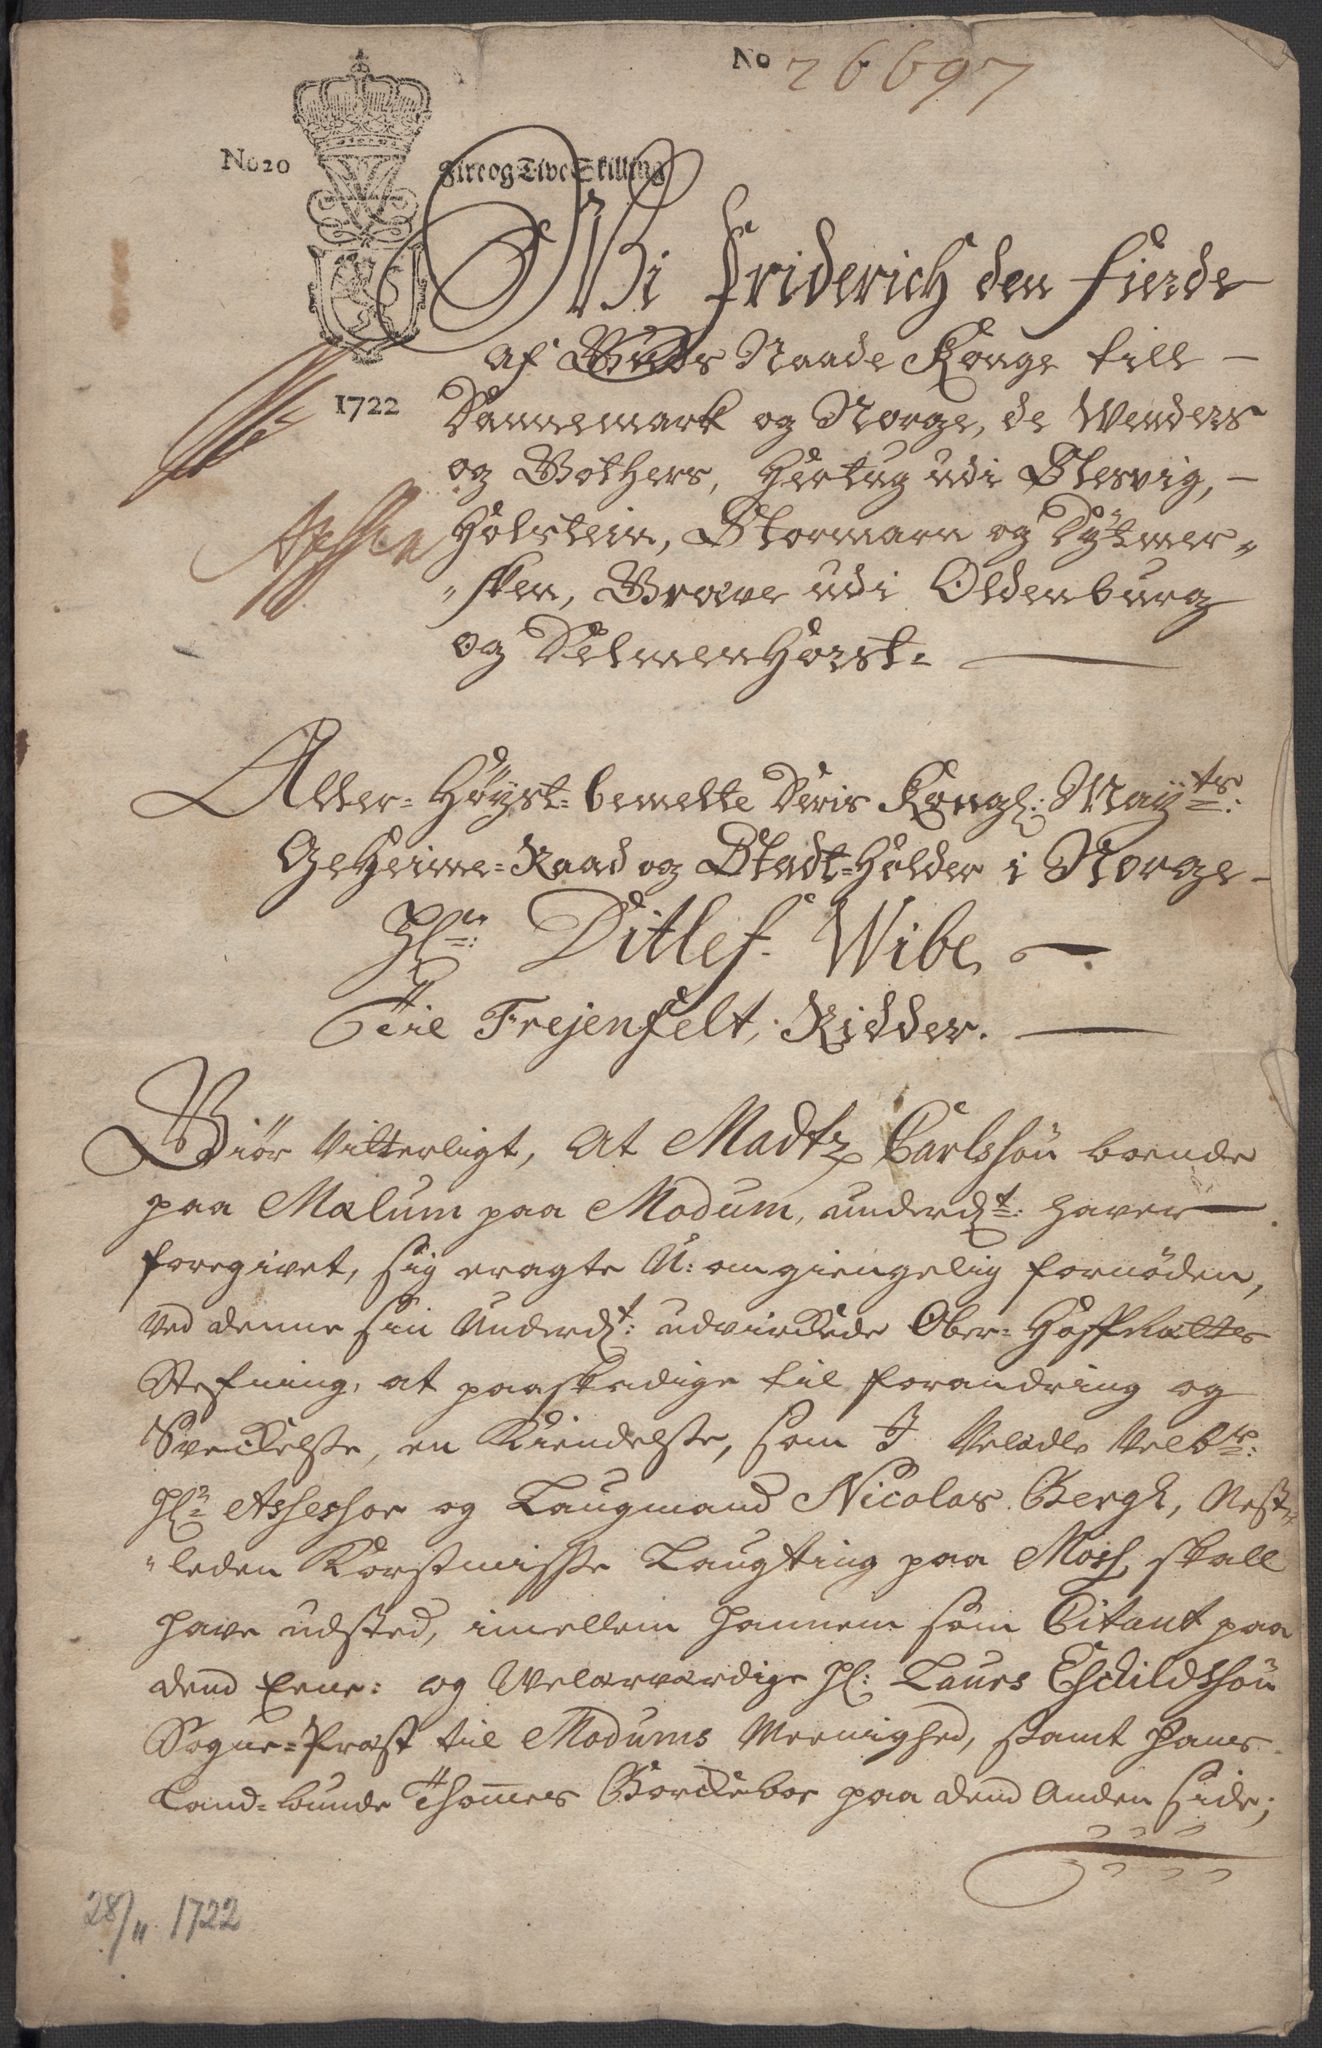 No 26697
No 20
Fire og Tive Skilling
1722
Wi Friderich den Fierde
af Guds Naade Konge till
Dannemark og Norge, de Wenders
og Gothers, Hertug udi Slesvig,
Holstein, Stormarn og Dÿtmer„
„sken, Greve udi Oldenburg
og Delmenhorst.
Aller-Høÿst-bemelte Deris Kongl: Maÿts:
Geheime-Raad og Stadt-Holder i Norge
Hr: Ditlef Wibe
Til Frejenfelt, Ridder.
Giør Vitterligt, At Madtz Carlssøn boende
paa Mælum paa Modum, underdt: haver
foregivet, sig eragte U:omgiengelig fornøden,
ved denne sin Underdt: udvirckede Ober-HoffRettes
Stefning, at paaskadige til forandring og
Sveckelse, en Kiendelse, som I Velædle Velbr:
Hr Assessor og Laugmand Nicolas Bergh, Nest„
„leden Korsmisse Laugting paa Moss, skall
have udsted, imellem hannem som Citant paa
dend Eene: og Welærværdige Hr: Laurs Eschildssøn
Sogne-Præst til Modums Meenighed, samt hans
Land-bunde Thomes Gorckeboe paa dend Anden side;
28/11 1722